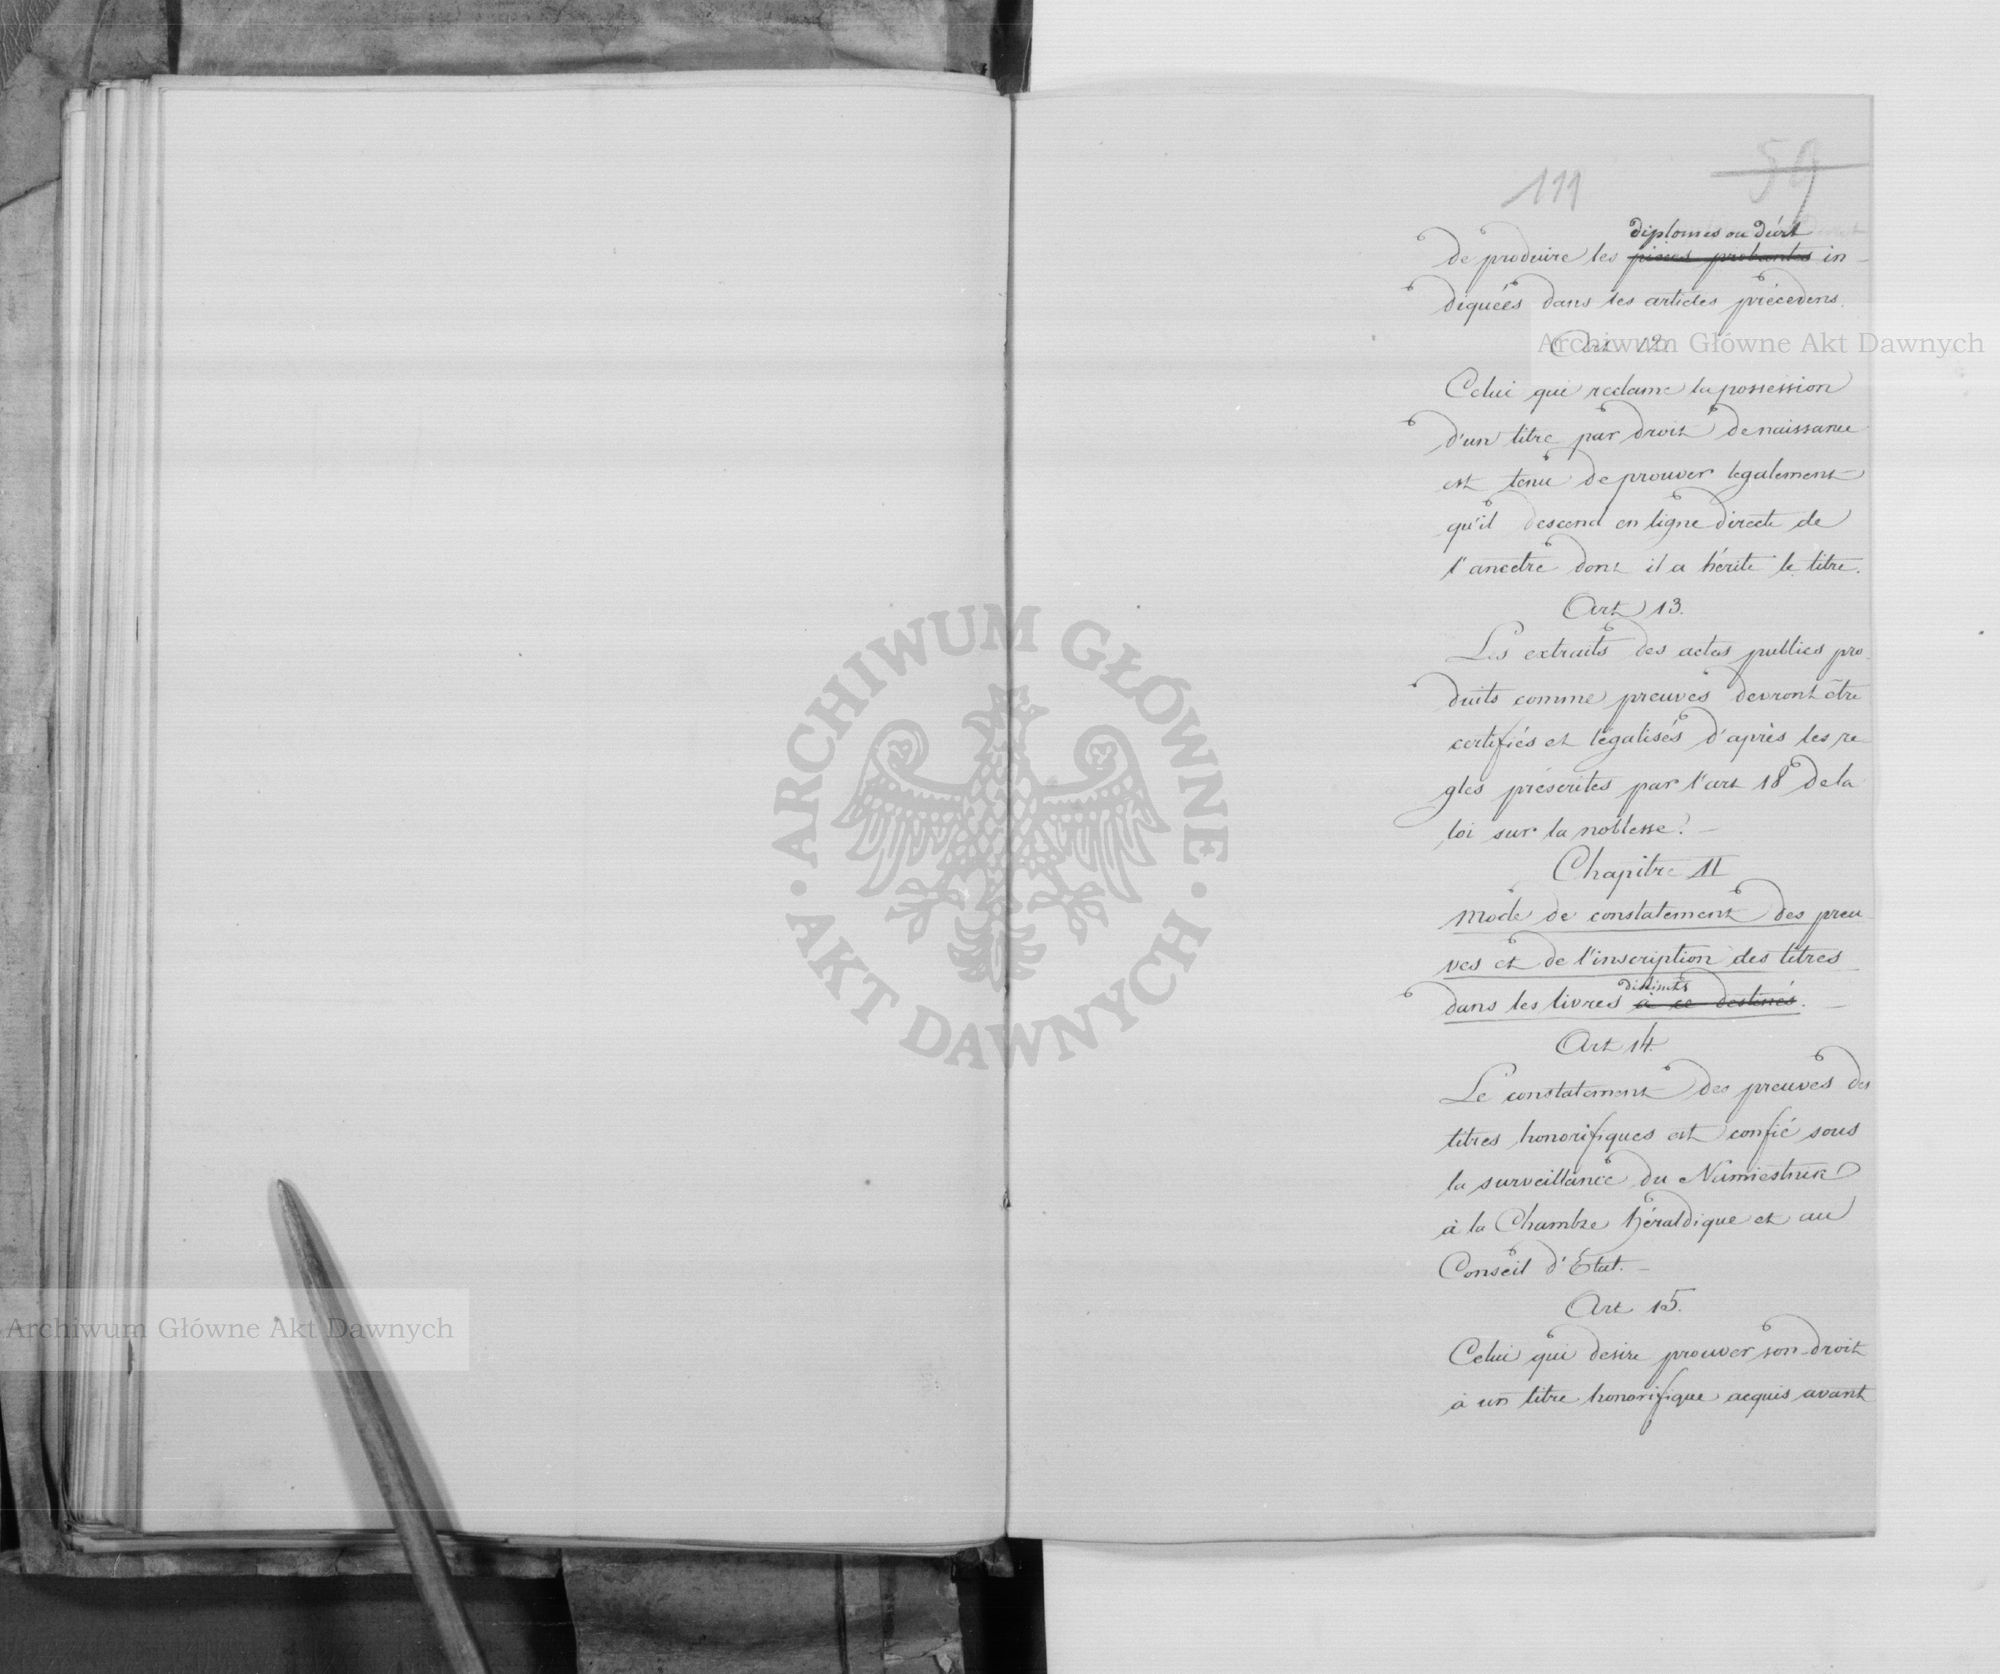 111
59
diplomes ou
de produire les pièces probantes in-
diquées dans les articles précedens.
Art. 12.
Celui qui reclame la possession
d'un titre par droit de naissance
est tenu de prouver legalement
qu'il descend en ligne directe de
l'ancetre dont il a hérité le titre.
Art 13.
Les extraits des actes publics pro-
duits comme preuves devront être
certifiés et légalisés d'après les re-
gles préscrites par l'art 18 de la
loi sur la noblesse. -
Chapitre II
Mode de constatement des preu-
ves et de l'inscription des titres
distincts
dans les livres à ce destinés. -
Art 14.
Le constatement des preuves des
titres honorifiques est confié sous
la surveillance du Namiestnik
à la Chambre héraldique et au
Conseil d'Etat. -
Art 15.
Celui qui desire prouver son droit
à un titre honorifique acquis avant
ARCHIWUM GŁÓWNE AKT DAWNYCH
Archiwum Główne Akt Dawnych
Archiwum Główne Akt Dawnych